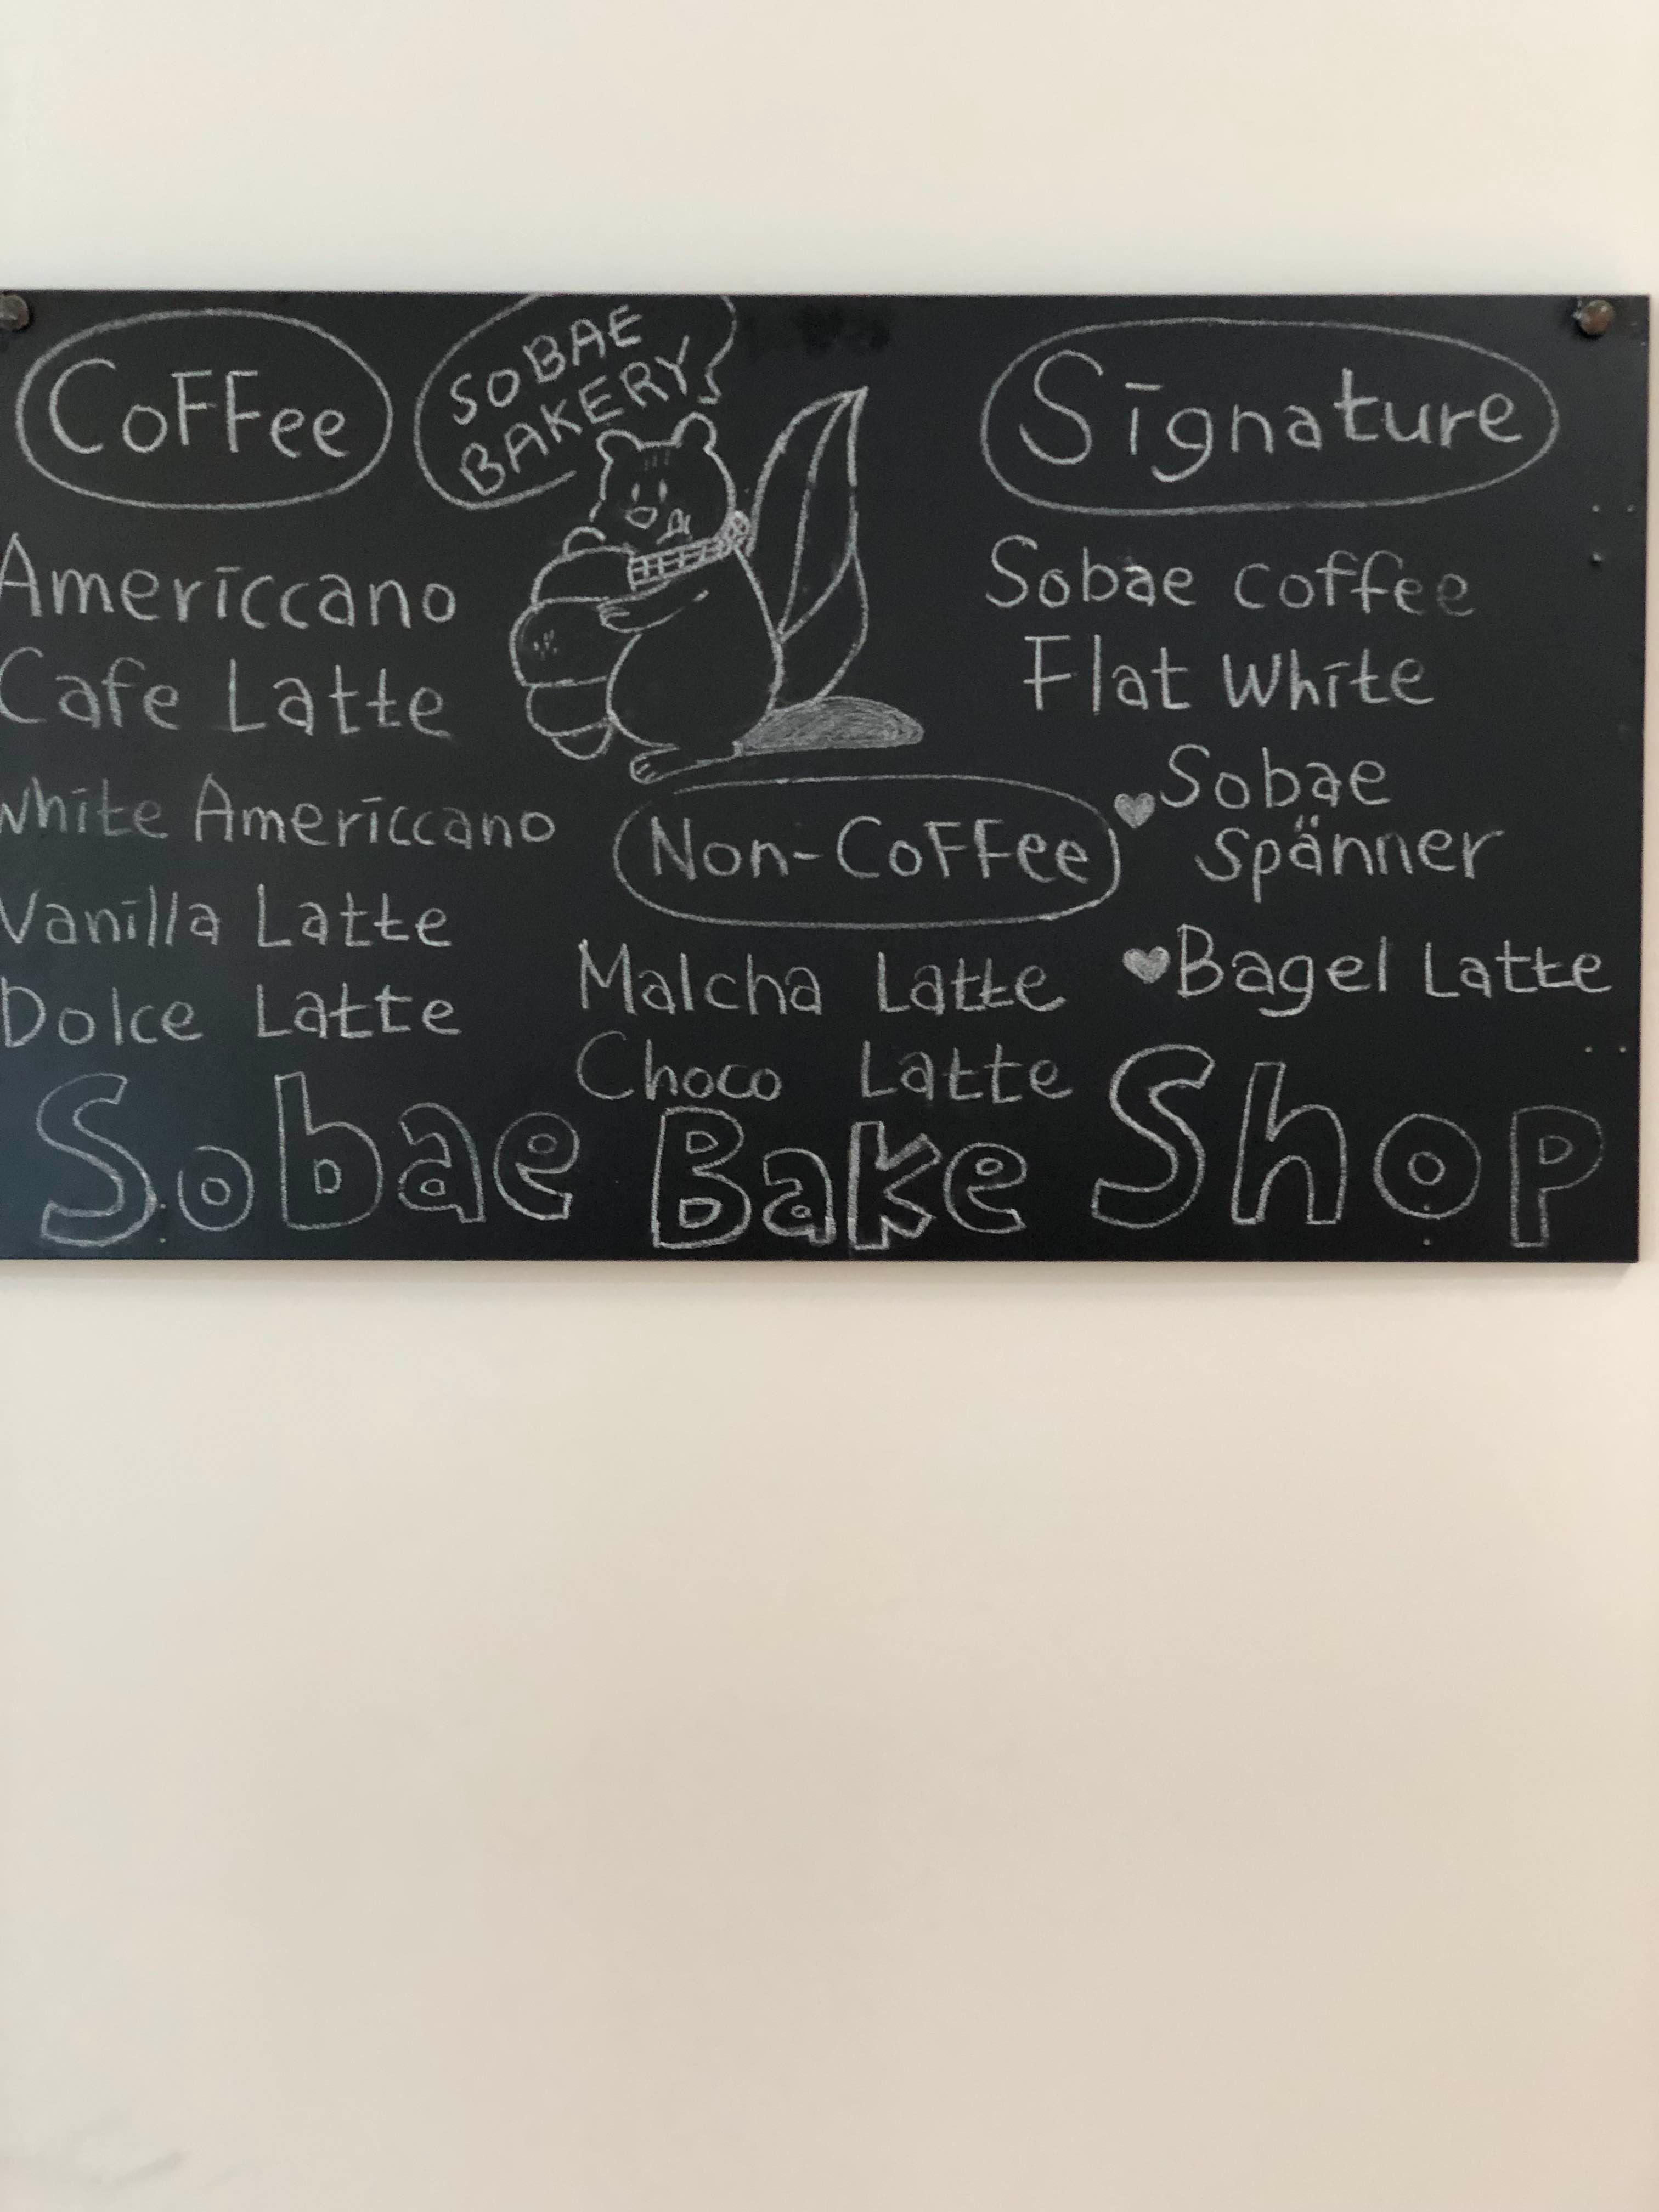 CoFFee
Americcano
Cafe Latte
White Americcano
Vanilla Latte
Dolce Latte
SOBAE
BAKERY
Non-CoFFee
Malcha Latte
Choco Latte
Signature
Sobae coffee
Flat White
♥Sobae
Spänner
♥Bagel Latte
Sobae Bake Shop